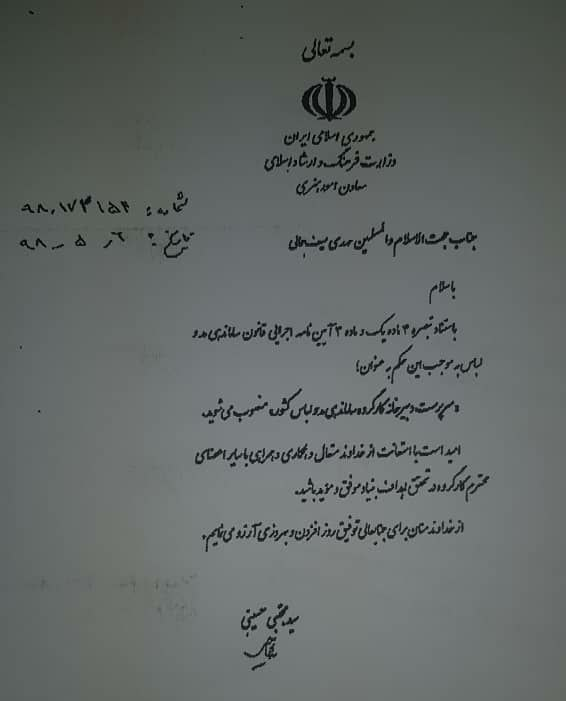 بسمه تعالی
جمهوری اسلامی ایران
وزارت فرهنگ و ارشاد اسلامی
معاون امور هنری
شماره: ۹۸،۱۷۳۱۵۲
تاریخ: ۲ر ۵ ـ ۹۸
جناب حجت الاسلام والمسلمین حمدی سیف جمالی
باسلام
باستناد تبصره ۳ ماده یک و ماده ۳ آیین نامه اجرایی قانون ساماندهی مد و
لباس به موجب این حکم به عنوان؛
«سرپرست دبیرخانه کارگروه ساماندهی مد و لباس کشور» منصوب می شوید.
امید است با استعانت از خداوند متعال و همکاری و همراهی با سایر اعضای
محترم کارگروه در تحقق اهداف بنیاد موفق و مؤید باشید.
از خداوند منان برای جنابعالی توفیق روز افزون و بهروزی آرزو می نمایم.
سید مجتبی حسینی